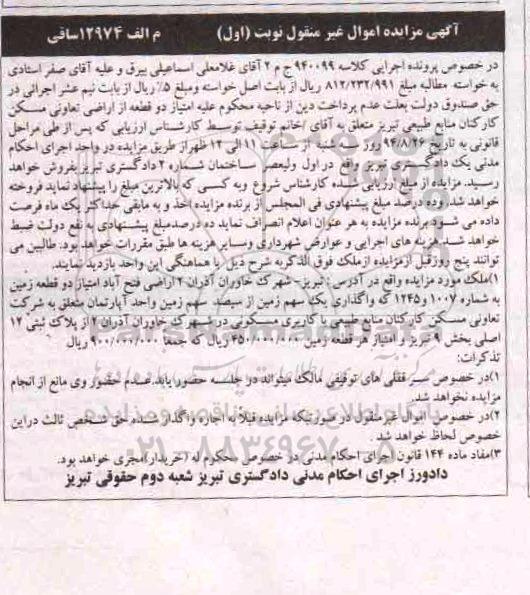 آگهی مزایده اموال غیر منقول نوبت (اول) م الف ۱۲۹۷۴ساقی
در خصوص پرونده اجرایی کلاسه ۹۴۰۰۹۹ ج م ۲ آقای غلامعلی اسماعیلی بیرق و علیه آقای صفر استادی
به خواسته مطالبه مبلغ ۸۱۲/۲۳۲/۹۹۱ ریال از بابت اصل خواسته ومبلغ ۵٪ ریال از بابت نیم عشر اجرائی در
حق صندوق دولت بعلت عدم پرداخت دین از ناحیه محکوم علیه امتیاز دو قطعه از اراضی تعاونی مسکن
کارکنان منابع طبیعی تبریز متعلق به آقای /خانم توقیف توسط کارشناس ارزیابی که پس از طی مراحل
قانونی به تاریخ ۹۴/۸/۲۶ روز سه شنبه از ساعت ۱۱ الی ۱۲ ظهراز طریق مزایده در واحد اجرای احکام
مدنی یک دادگستری تبریز واقع در اول ولیعصر ساختمان شماره ۲ دادگستری تبریز بفروش خواهد
رسید. مزایده از مبلغ ارزیابی شده کارشناس شروع وبه کسی که بالاترین مبلغ را پیشنهاد نماید فروخته
خواهد شد. وده درصد مبلغ پیشنهادی فی المجلس از برنده مزایده اخذ و به مابقی حداکثر یک ماه فرصت
داده می شود برنده مزایده به هر عنوان اعلام انصراف نماید ده درصدمبلغ پیشنهادی به نفع دولت ضبط
خواهد شد هزینه های اجرایی و عوارض شهرداری وسایر هزینه ها طبق مقررات خواهد بود. طالبین می
توانند پنج روزقبل ازمزایده ازملک فوق الذکربه شرح ذیل با هماهنگی این واحد بازدید نمایند.
۱)ملک مورد مزایده واقع در آدرس : تبریز- شهرک خاوران آدران ۲ اراضی فتح آباد امتیاز دو قطعه زمین
به شماره ۱۰۰۷ و۱۲۴۵ که واگذاری یک سهم زمین از سیصد سهم زمین واحد آپارتمان متعلق به شرکت
تعاونی مسکن کارکنان منابع طبیعی با کاربری مسکونی در شهرک خاوران آدران ۲ از پلاک ثبتی ۱۲
اصلی بخش ۹ تبریز و امتیاز هر قطعه زمین ۴۵۰/۰۰۰/۰۰۰ ریال که جمعا ۹۰۰/۰۰۰/۰۰۰ ریال
تذکرات:
۱)در خصوص سر قفلی های توقیفی مالک میتواند در جلسه حضور یابد.عدم حضور وی مانع از انجام
مزایده نخواهد شد.
۲)در خصوص اموال غیرمنقول در صورتیکه مزایده قبلاً به اجاره واگذار شده حق شخص ثالث دراین
خصوص لحاظ خواهد شد .
۳)مفاد ماده ۱۴۴ قانون اجرای احکام مدنی در خصوص محکوم له (خریدار)مجری خواهد بود.
دادورز اجرای احکام مدنی دادگستری تبریز شعبه دوم حقوقی تبریز
۰۲۱-۸۸۳۴۹۶۷۰